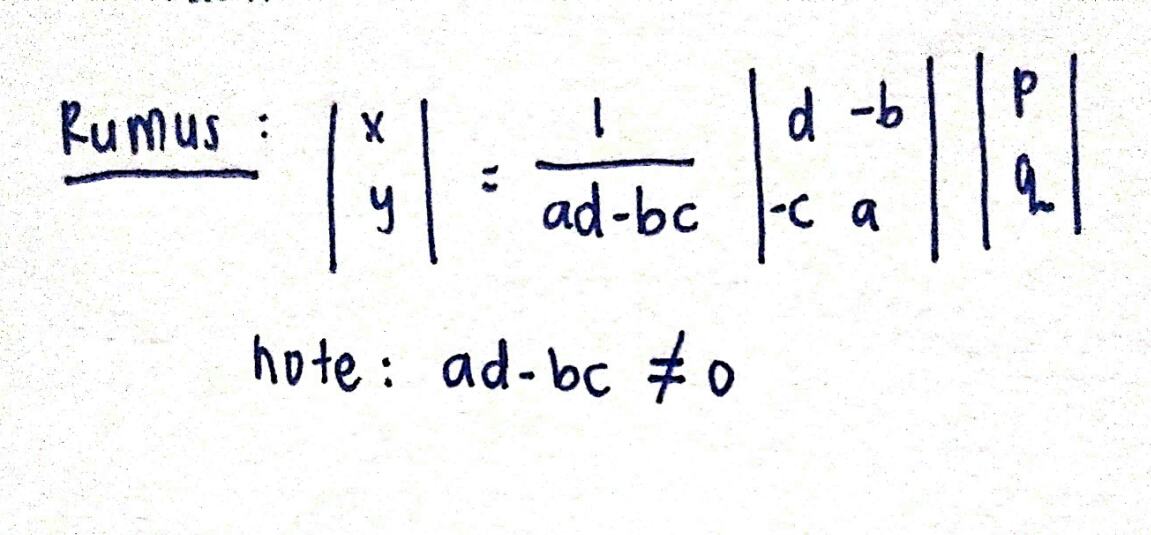 Rumus : | x y | = 1 / ad-bc | d -b -c a | | p q |
note : ad-bc ≠ 0